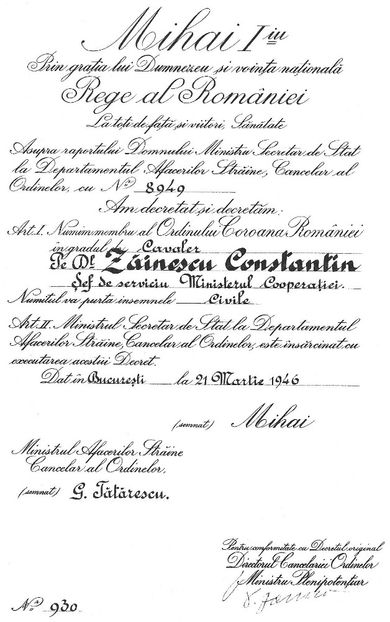 Mihai I iu
Prin grația lui Dumnezeu și voința națională
Rege al României
La toți de față și viitori, Sănătate
Asupra raportului Domnului Ministru Secretar de Stat
la Departamentul Afacerilor Străine, Cancelar al
Ordinelor, cu No 8949
Am decretat și decretăm:
Art. I. Numim membru al Ordinului Coroana României
în gradul de Cavaler
Pe Dl. Zăinescu Constantin
Șef de serviciu Ministerul Cooperației.
Numitul va purta însemnele Civile
Art. II. Ministrul Secretar de Stat la Departamentul
Afacerilor Străine, Cancelar al Ordinelor, este însărcinat cu
executarea acestui Decret.
Dat în București la 21 Martie 1946
(semnat) Mihai
Ministrul Afacerilor Străine
Cancelar al Ordinelor.
(semnat) G. Tătărescu.
Pentru conformitate cu Decretul original
Directorul Cancelariei Ordinelor
Ministru Plenipotențiar
No 930